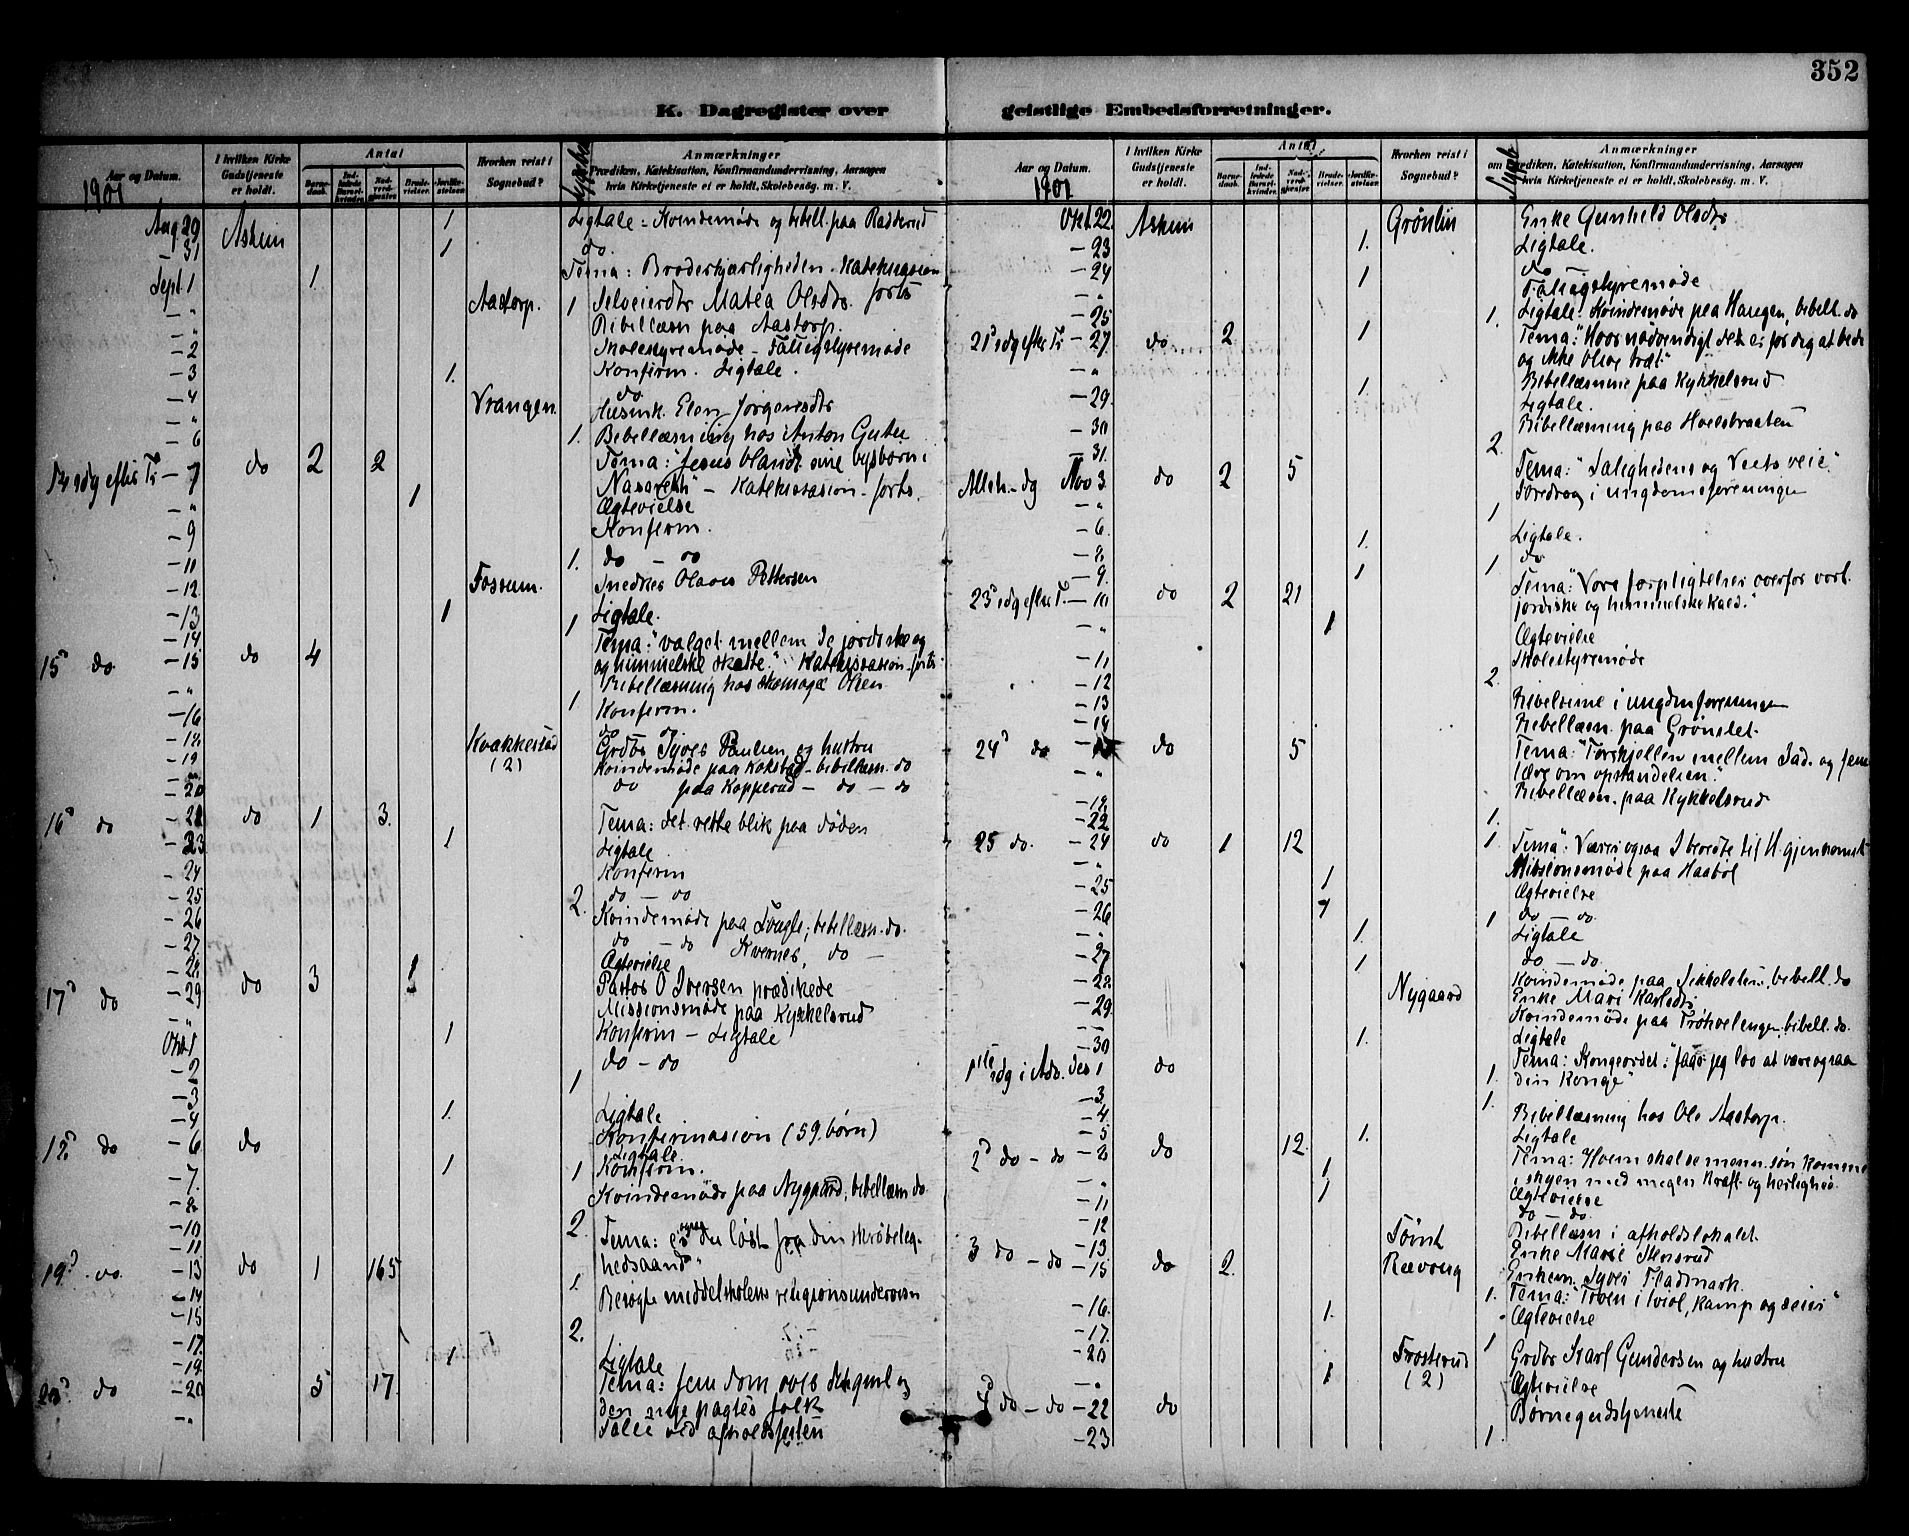 352
K. Dagregister over geistlige Embedsforretninger.
Aar og Datum.
1901
I hvilken Kirke Gudstjeneste er holdt.
Antal
Barnedaab.
Indledede Barselkvinder.
Nadverdgjester.
Brudevielser.
Jordfæstelser.
Hvorhen reist i Sognebud?
Anmærkninger
Prædiken, Katekisation, Konfirmandundervisning, Aarsagen
hvis Kirketjeneste ei er holdt, Skolebesøg. m. V.
Aug 29 Askim 1 Ligtale - Kvindemøde og bibell. paa Radderud
- 31 1 do
Sept 1 1 Tema: Broderkjærligheden - Katekisasion
- " Aastorp. 1 Selveierdtr Matea Olsdtr. forts
- " Bibellæsn paa Aastorp.
- 2 Skolestyremøde - Fattigstyremøde
- 3 1. Konfirm. Ligtale.
- 4 Vrangen. do
- " Husmk. Elen Jørgensdtr
- 6 1. Bibellæsning hos Anton
14 sdg efter Tr - 7 do 2 2 Tema: "Jesus blandt sine bysbørn i
Nasareth" - Katekisasion - forts.
- " 1 Ægtevielse
- 9 Konfirm.
- 11 1. do - do
- 12 Fossum. Snedker Olaves Pettersen
- 13 1 Ligtale.
- 14 1
15d do - 15 do 4 Tema: "valget mellem de jordiske og
og himmelske skatte." Katekisasion - forts
- " Bibellæsning hos skomager Olsen
- 16 1 Konfirm.
- 18 Kvakkestad do
- 19 (2) Grdbr Syver Paulsen og hustru
- " Kvindemøde paa Kokstad - bibellæsn. do
- 20 do paa Kopperud - do - do
16d do - 22 do 1 3. Tema: det rette blik paa døden
- 23 1 Ligtale
- 24 Konfirm
- 25 2. do - do
- 26 Kvindemøde paa bibellæsn. do.
- 27. do - do Kvernes, do -
- 28 1 Ægtevielse
17d do - 29 do 3 Pastor O Iversen prædikede
- " Missionsmøde paa Kykkelsrud
Okt 1 1 Konfirm - Ligtale
- 2 do - do
- 3 1
- 4 1. Ligtale
18d do - 6 do Konfirmasion (59 børn)
Ligtale
- 7. 1 1 Konfirm.
- 8 Kvindemøde paa Nygaard, bibellæsn do
- 10 2.
- 11
19d do - 13 do 1 165 Tema: er du løst fra din skrøbelighedsaand"
- 14 1.
- 15 Besøgte middelskolens religionsundervisn
- 17. 2.
- 19 1 Ligtale
20d do - 20 5 17 Tema: Jesu dom over det gml og
den nye pagtes folk
- " Tale ved afholdsfesten
Aar og Datum.
1901
I hvilken Kirke Gudstjeneste er holdt.
Antal
Barnedaab.
Indledede Barselkvinder.
Nadverdgjester.
Brudevielser.
Jordfæstelser.
Hvorhen reist i Sognebud?
Anmærkninger
om Prædiken, Katekisation, Konfirmandundervisning, Aarsagen
hvis Kirketjeneste ei er holdt, Skolebesøg. m. V.
Okt. 22. Askim Grönlin Enke Gunhild Olsdtr
- 23 1. Ligtale.
- 24 1 do
- " Fattigstyremøde
- 25 1. Ligtale. Kvindemøde paa Haugen, bibell. do
21d sdg efter Tr - 27. do 2 1 Tema: "Hvor nødvendigt det er for dig at bede
og ikke blive træt"
- " Bibellæsning paa Kykkelsrud
- 29. 1 Ligtale.
- 30 Bibellæsning paa Hoelsbraaten
- 31. 2.
Alleh.-dg Nov 3. do 2 5 Tema: "Salighedens og Veets veie."
- " Foredrag i ungdomsforeningen
- 6. 1. Ligtale.
- 8 1 do
- 9. 1
23d sdg efter Tr. - 10 do 2 21 Tema: "Vore forpligtelser overfor vort
jordiske og himmelske kald."
- " 1 Ægtevielse
- 11 Skolestyremøde
- 12 2.
- 13 Bibeltime i ungdmforeningen
- 14 Bibellæsn. paa Grønslet
24d do do 5 Tema: "Forskjellen mellem Sad. og Jesu
lære om opstandelsen".
- " Bibellæsn. paa Kykkelsrud
- 18 1.
- 22 1
25 do. - 24 do 1 12 Tema: "Værer ogsaa I beredte til H. gjenkomst
- " Missionsmøde paa Haabøl
- 25 1 Ægtevielse
- 26 1 do - do.
- " 1. Ligtale
- 27 1 do - do.
- 28 Kvindemøde paa bibell. do
- 29. Nygaard Enke Mari Karlsdtr
- - Kvindemøde paa Trøhvelengen bibell. do.
- 30 1. Ligtale
1ste sdg i Adv. Des 1 do Tema: Kongeordet: "faar jeg lov at være ogsaa
din Konge"
- 3. 1.
- 4. Bibellæsning hos Ole Aastorp.
- 5 1. Ligtale
2d do - do - 8 do 12. Tema: Hvem skal se menn. søn komme
i skyen med megen kraft og herlighed
- " 1 Ægtevielse
- 11 1 do - do.
- 12 Bibellæsn i afholdslokalet.
- 13 Enke Marie Stensrud
3 do - do - 15 do 2. Enkem. Syver Fladmark.
1. Tema: "Troen i tvivl, kamp og seier"
- 16. 1. Ægtevielse
- 17. 1
- 20 Frosterud Grdbr Karl Gundersen og hustru
- " 1 (2) Ægtevielse
4d do - do - 22 do Børnegudstjeneste
- 23 1.